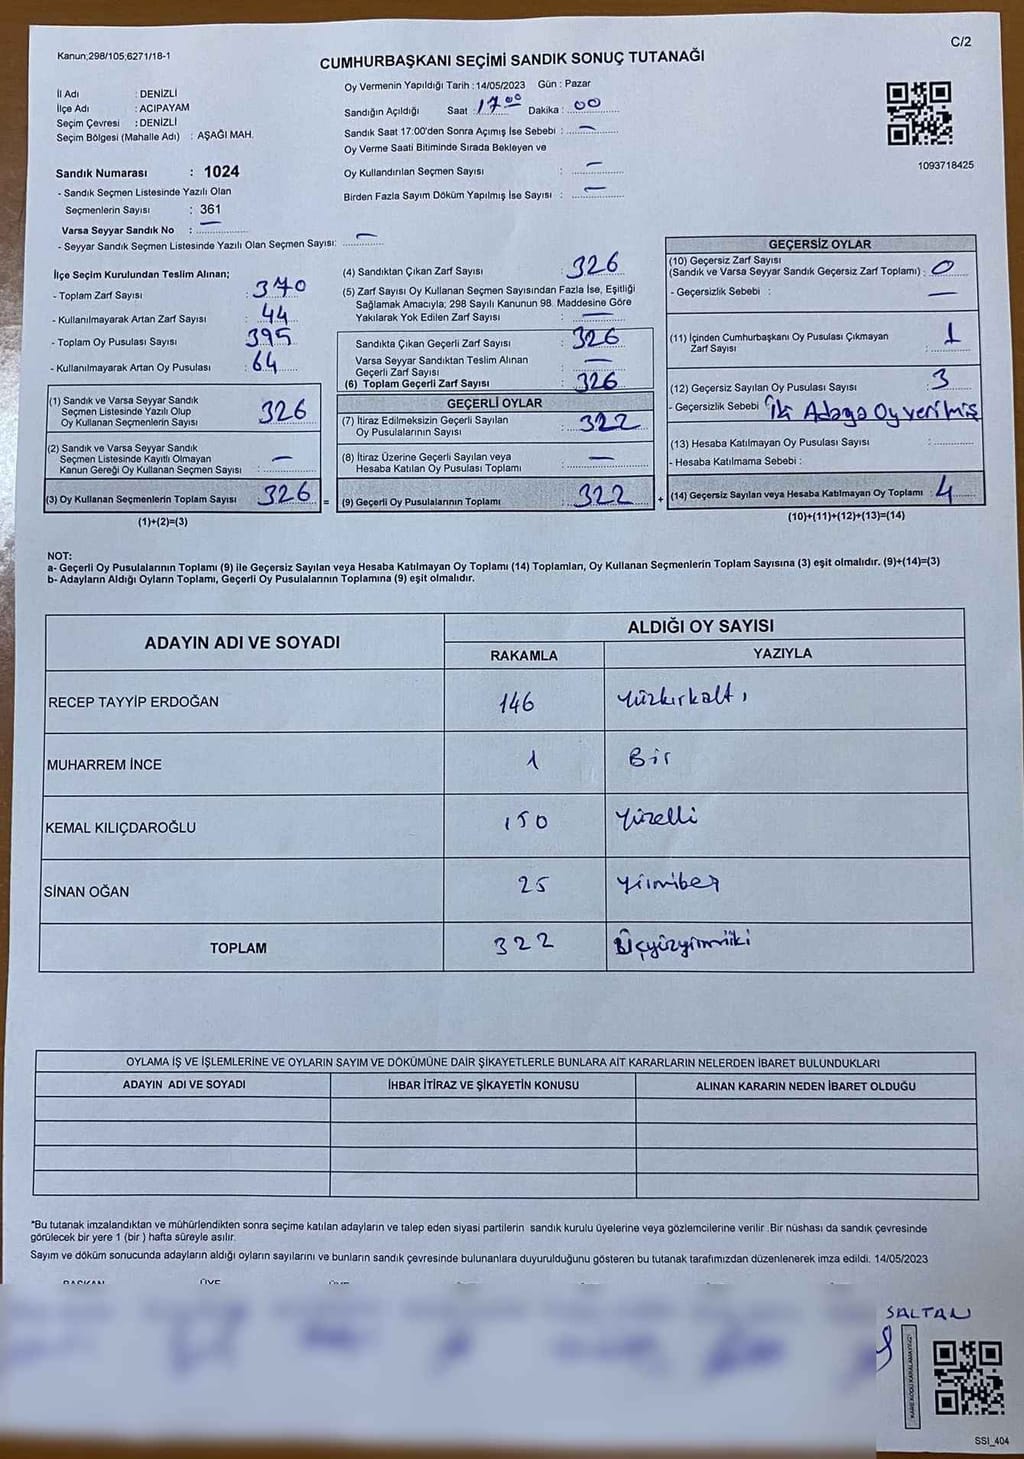 Kanun;298/105;6271/18-1
C/2
CUMHURBAŞKANI SEÇİMİ SANDIK SONUÇ TUTANAĞI
İl Adı : DENİZLİ
İlçe Adı : ACIPAYAM
Seçim Çevresi : DENİZLİ
Seçim Bölgesi (Mahalle Adı) : AŞAĞI MAH.
Sandık Numarası : 1024
- Sandık Seçmen Listesinde Yazılı Olan
Seçmenlerin Sayısı : 361
Varsa Seyyar Sandık No : —
- Seyyar Sandık Seçmen Listesinde Yazılı Olan Seçmen Sayısı: —
Oy Vermenin Yapıldığı Tarih : 14/05/2023 Gün : Pazar
Sandığın Açıldığı Saat : 17.00 Dakika : 00
Sandık Saat 17:00'den Sonra Açımış İse Sebebi : —
Oy Verme Saati Bitiminde Sırada Bekleyen ve
Oy Kullandırılan Seçmen Sayısı : —
Birden Fazla Sayım Döküm Yapılmış İse Sayısı : —
1093718425
İlçe Seçim Kurulundan Teslim Alınan;
- Toplam Zarf Sayısı : 370
- Kullanılmayarak Artan Zarf Sayısı : 44
- Toplam Oy Pusulası Sayısı : 395
- Kullanılmayarak Artan Oy Pusulası : 64
(1) Sandık ve Varsa Seyyar Sandık
Seçmen Listesinde Yazılı Olup
Oy Kullanan Seçmenlerin Sayısı : 326
(2) Sandık ve Varsa Seyyar Sandık
Seçmen Listesinde Kayıtlı Olmayan
Kanun Gereği Oy Kullanan Seçmen Sayısı : —
(3) Oy Kullanan Seçmenlerin Toplam Sayısı : 326
(1)+(2)=(3)
(4) Sandıktan Çıkan Zarf Sayısı : 326
(5) Zarf Sayısı Oy Kullanan Seçmen Sayısından Fazla İse, Eşitliği
Sağlamak Amacıyla; 298 Sayılı Kanunun 98. Maddesine Göre
Yakılarak Yok Edilen Zarf Sayısı : —
Sandıkta Çıkan Geçerli Zarf Sayısı : 326
Varsa Seyyar Sandıktan Teslim Alınan
Geçerli Zarf Sayısı : —
(6) Toplam Geçerli Zarf Sayısı : 326
GEÇERLİ OYLAR
(7) İtiraz Edilmeksizin Geçerli Sayılan
Oy Pusulalarının Sayısı : 322
(8) İtiraz Üzerine Geçerli Sayılan veya
Hesaba Katılan Oy Pusulası Toplamı : —
= (9) Geçerli Oy Pusulalarının Toplamı : 322
GEÇERSİZ OYLAR
(10) Geçersiz Zarf Sayısı
(Sandık ve Varsa Seyyar Sandık Geçersiz Zarf Toplamı) : 0
- Geçersizlik Sebebi : —
(11) İçinden Cumhurbaşkanı Oy Pusulası Çıkmayan
Zarf Sayısı : 1
(12) Geçersiz Sayılan Oy Pusulası Sayısı : 3
- Geçersizlik Sebebi : İki Adaya Oy verilmiş
(13) Hesaba Katılmayan Oy Pusulası Sayısı :
- Hesaba Katılmama Sebebi :
+ (14) Geçersiz Sayılan veya Hesaba Katılmayan Oy Toplamı : 4
(10)+(11)+(12)+(13)=(14)
NOT:
a- Geçerli Oy Pusulalarının Toplamı (9) ile Geçersiz Sayılan veya Hesaba Katılmayan Oy Toplamı (14) Toplamları, Oy Kullanan Seçmenlerin Toplam Sayısına (3) eşit olmalıdır. (9)+(14)=(3)
b- Adayların Aldığı Oyların Toplamı, Geçerli Oy Pusulalarının Toplamına (9) eşit olmalıdır.
ADAYIN ADI VE SOYADI ALDIĞI OY SAYISI
RAKAMLA YAZIYLA
RECEP TAYYİP ERDOĞAN 146 Yüzkırkaltı
MUHARREM İNCE 1 Bir
KEMAL KILIÇDAROĞLU 150 Yüzelli
SİNAN OĞAN 25 Yirmibeş
TOPLAM 322 Üçyüzyirmiiki
OYLAMA İŞ VE İŞLEMLERİNE VE OYLARIN SAYIM VE DÖKÜMÜNE DAİR ŞİKAYETLERLE BUNLARA AİT KARARLARIN NELERDEN İBARET BULUNDUKLARI
ADAYIN ADI VE SOYADI İHBAR İTİRAZ VE ŞİKAYETİN KONUSU ALINAN KARARIN NEDEN İBARET OLDUĞU
*Bu tutanak imzalandıktan ve mühürlendikten sonra seçime katılan adayların ve talep eden siyasi partilerin sandık kurulu üyelerine veya gözlemcilerine verilir .Bir nüshası da sandık çevresinde
görülecek bir yere 1 (bir ) hafta süreyle asılır.
Sayım ve döküm sonucunda adayların aldığı oyların sayılarını ve bunların sandık çevresinde bulunanlara duyurulduğunu gösteren bu tutanak tarafımızdan düzenlenerek imza edildi. 14/05/2023
BAŞKAN ÜYE ÜYE
SALTAN
KARE KODU KARALAMAYINIZ
SSI_404